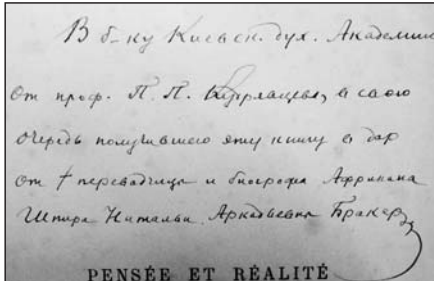 В б-ку Киевск. дух. Академии
От проф. П. П. Кудрявцева, в свою
очередь получившего эту книгу в дар
от † переводчицы и биографа Африкана
Шпира Натальи Аркадьевны Бракер
PENSÉE ET RÉALITÉ